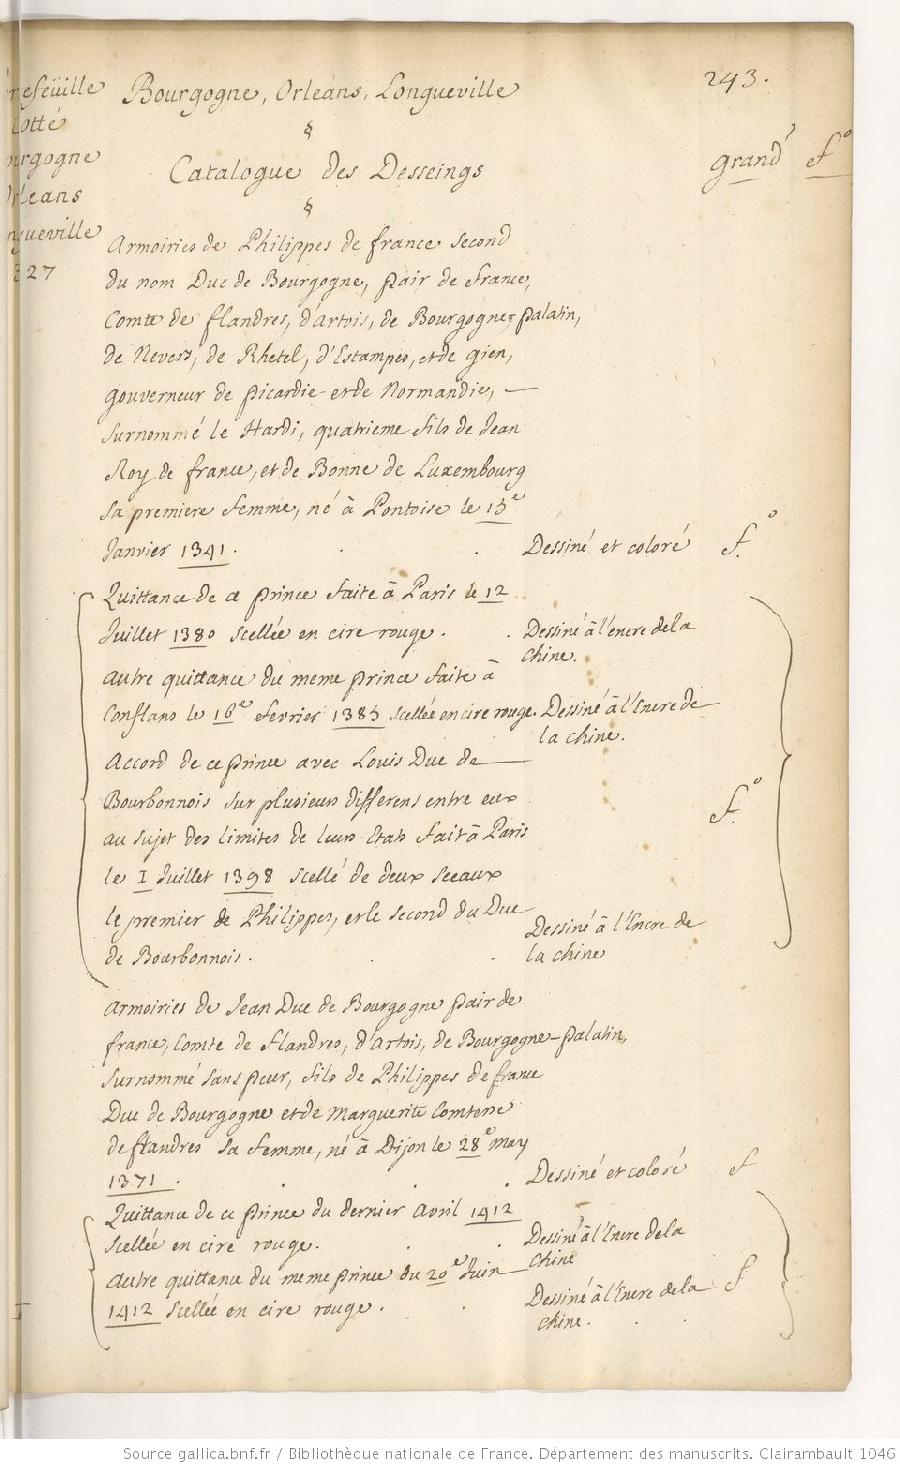 243.
Bourgogne, Orleans, Longueville
§
Catalogue des Desseings
grand fo
§
Armoiries de Philippes de france second
du nom Duc de Bourgogne, pair de france,
Comte de flandres, d'artois, de Bourgogne=palatin,
de Nevers, de Rhetel, d'Estampes, et de gien,
gouverneur de picardie et de Normandie, —
surnommé le Hardi, quatrieme fils de Jean
Roy de france, et de Bonne de Luxembourg
sa premiere femme, né à Pontoise le 15e
Janvier 1341. . . Dessiné et coloré fo
Quittance de ce prince faite à Paris le 12
Juillet 1380 scellée en cire rouge. . Dessiné à l'encre de la
chine.
autre quittance du meme prince faite à
Conflans le 16e fevrier 1385 scellée en cire rouge. Dessiné à l'Encre de
la chine.
Accord de ce prince avec Louis Duc de —
Bourbonnois sur plusieurs differens entre eux
fo
au sujet des limites de leurs Etats fait à Paris
le I Juillet 1398 scellé de deux sceaux
le premier de Philippes, et le second du Duc
de Bourbonnois. . . Dessiné à l'Encre de
la chine
armoiries de Jean Duc de Bourgogne pair de
france, Comte de flandres, d'artois, de Bourgogne=palatin,
surnommé sans peur, fils de Philippes de france
Duc de Bourgogne et de Marguerite Comtesse
de flandres sa femme, né à Dijon le 28e may
1371. . . . Dessiné et coloré f
Quittance de ce prince du dernier Avril 1412
scellée en cire rouge. . . Dessiné à l'Encre de la
chine
autre quittance du meme prince du 20e Juin —
1412 scellée en cire rouge. . Dessiné à l'Encre de la f
chine. . .
efeüille
otté
rgogne
leans
ueville
327
Source gallica.bnf.fr / Bibliothèque nationale de France. Département des manuscrits. Clairambault 1046